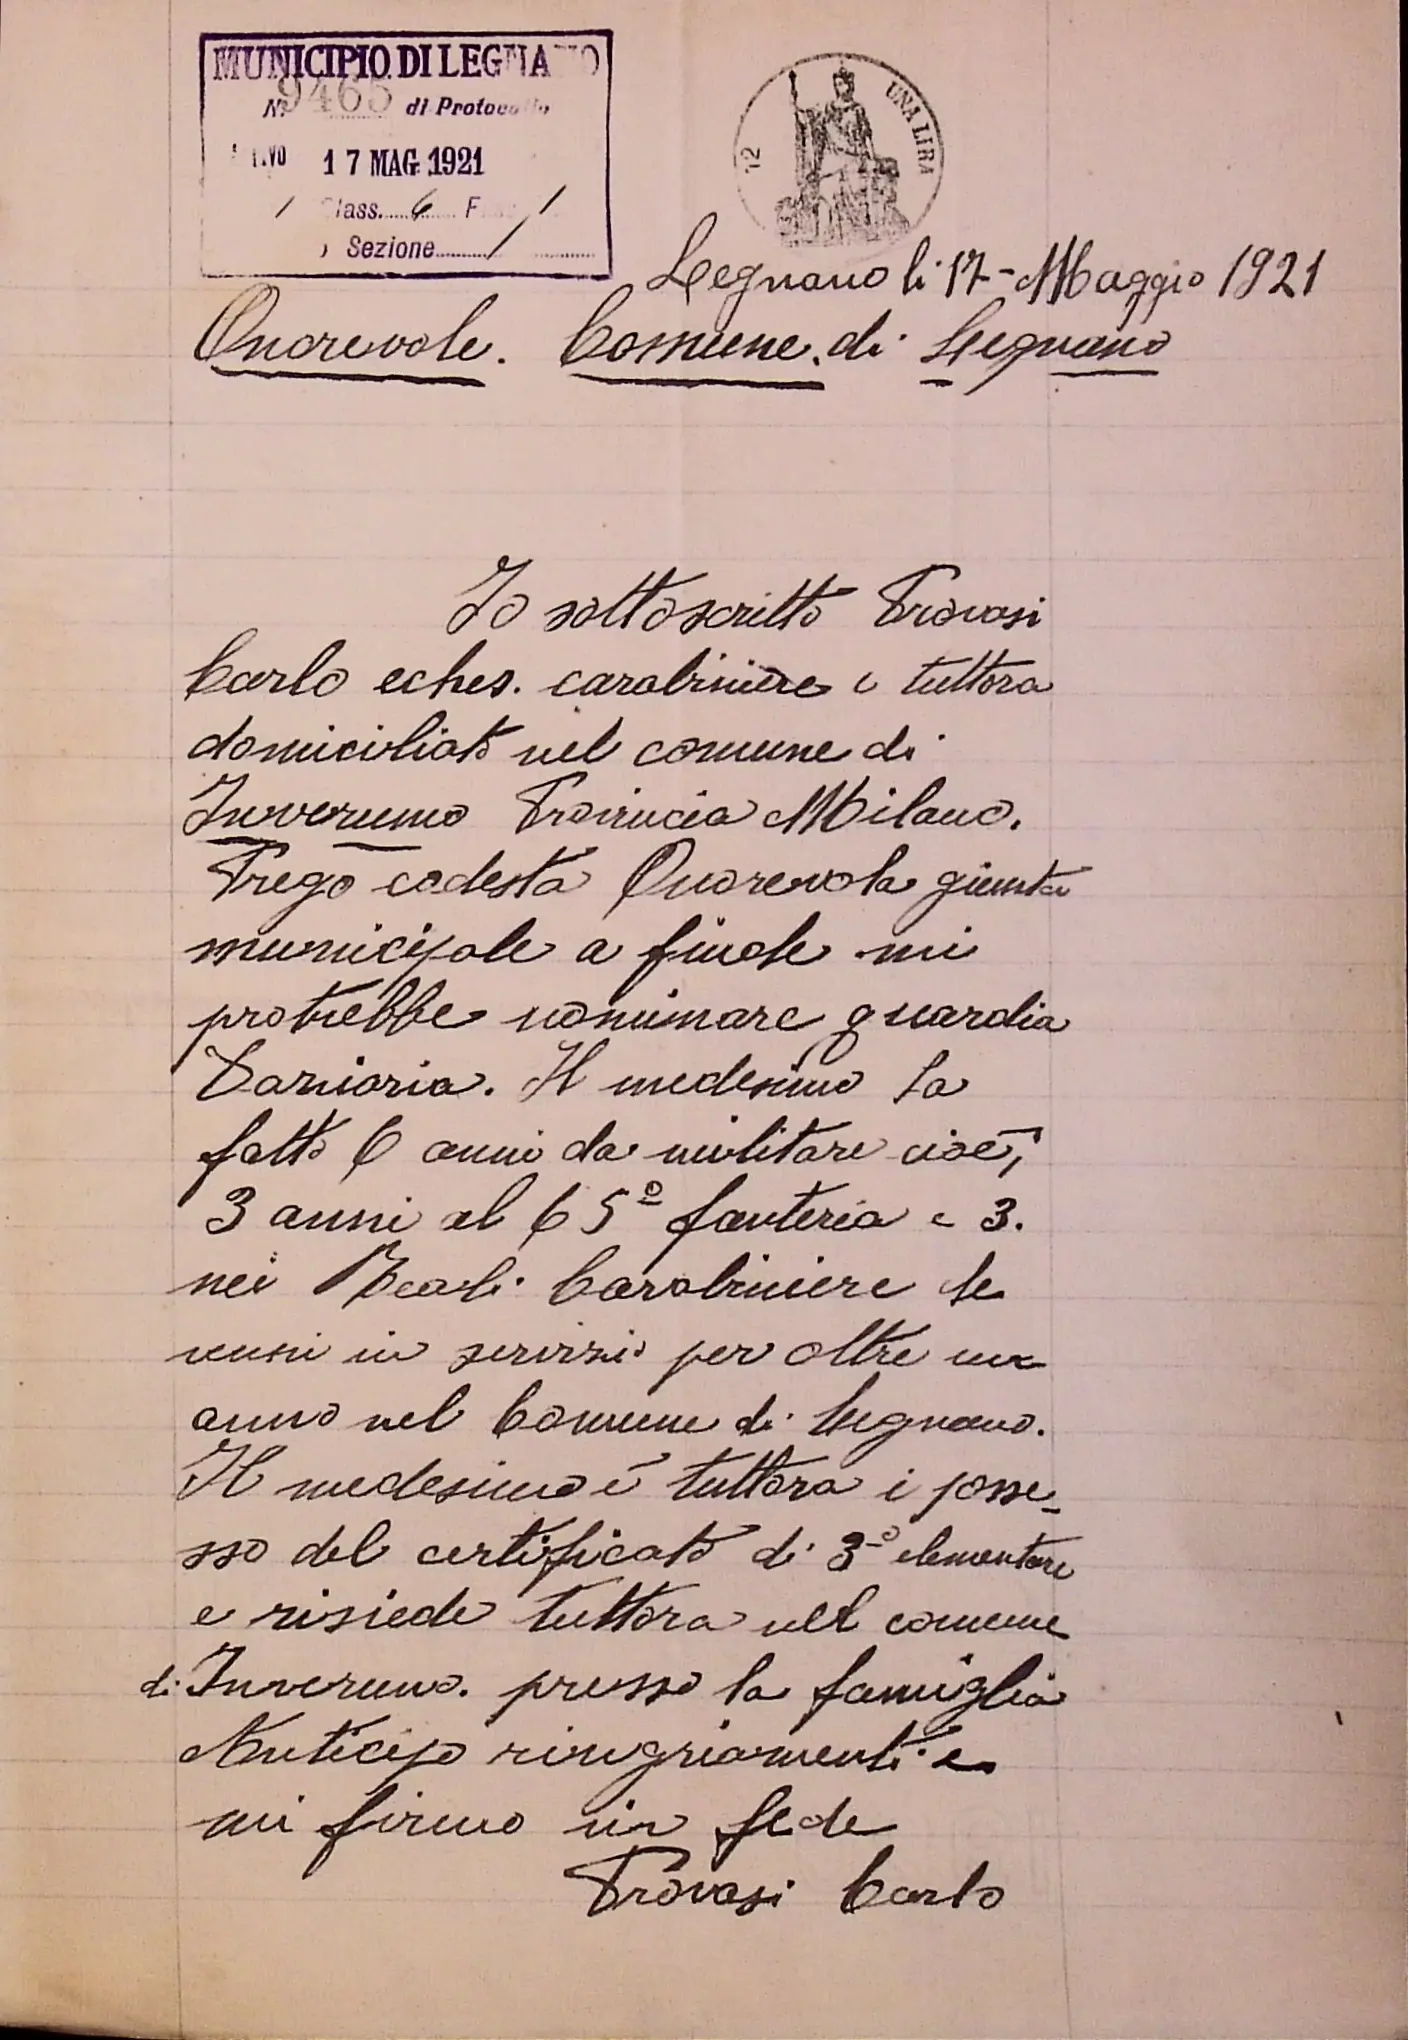 MUNICIPIO DI LEGNANO
N. 9465 di Protocollo
17 MAG. 1921
1 Class. 6 F 1
Sezione 1
12 UNA LIRA
Legnano li 17 - Maggio 1921
Onorevole. Comune. di Legnano
Io sottoscritto Provasi
Carlo eches. carabiniere e tuttora
domiciliato nel comune di
Inveruno Provincia Milano.
Prego codesta Onorevola giunta
municipale a finole mi
protrebbe nominare guardia
Dariaria. Il medesimo la
fatto 6 anni da militare cioè,
3 anni al 65º fanteria e 3.
nei Reali Carabiniere le
venni in servizio per oltre un
anno nel Comune di Legnano.
Il medesimo è tuttora i posse-
sso del certificato di 3º elementare
e risiede tuttora nel comune
di Inveruno. presso la famiglia
Anticipo ringriamenti e
mi firmo in fede
Provasi Carlo